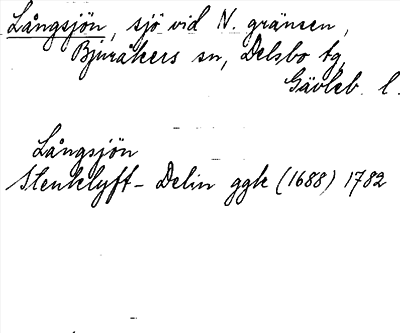 Långsjön, sjö vid N. gränsen,
Bjuråkers sn, Delsbo tg,
Gävleb. l.
Långsjön
Stenklyft- Delin ggk (1688) 1782